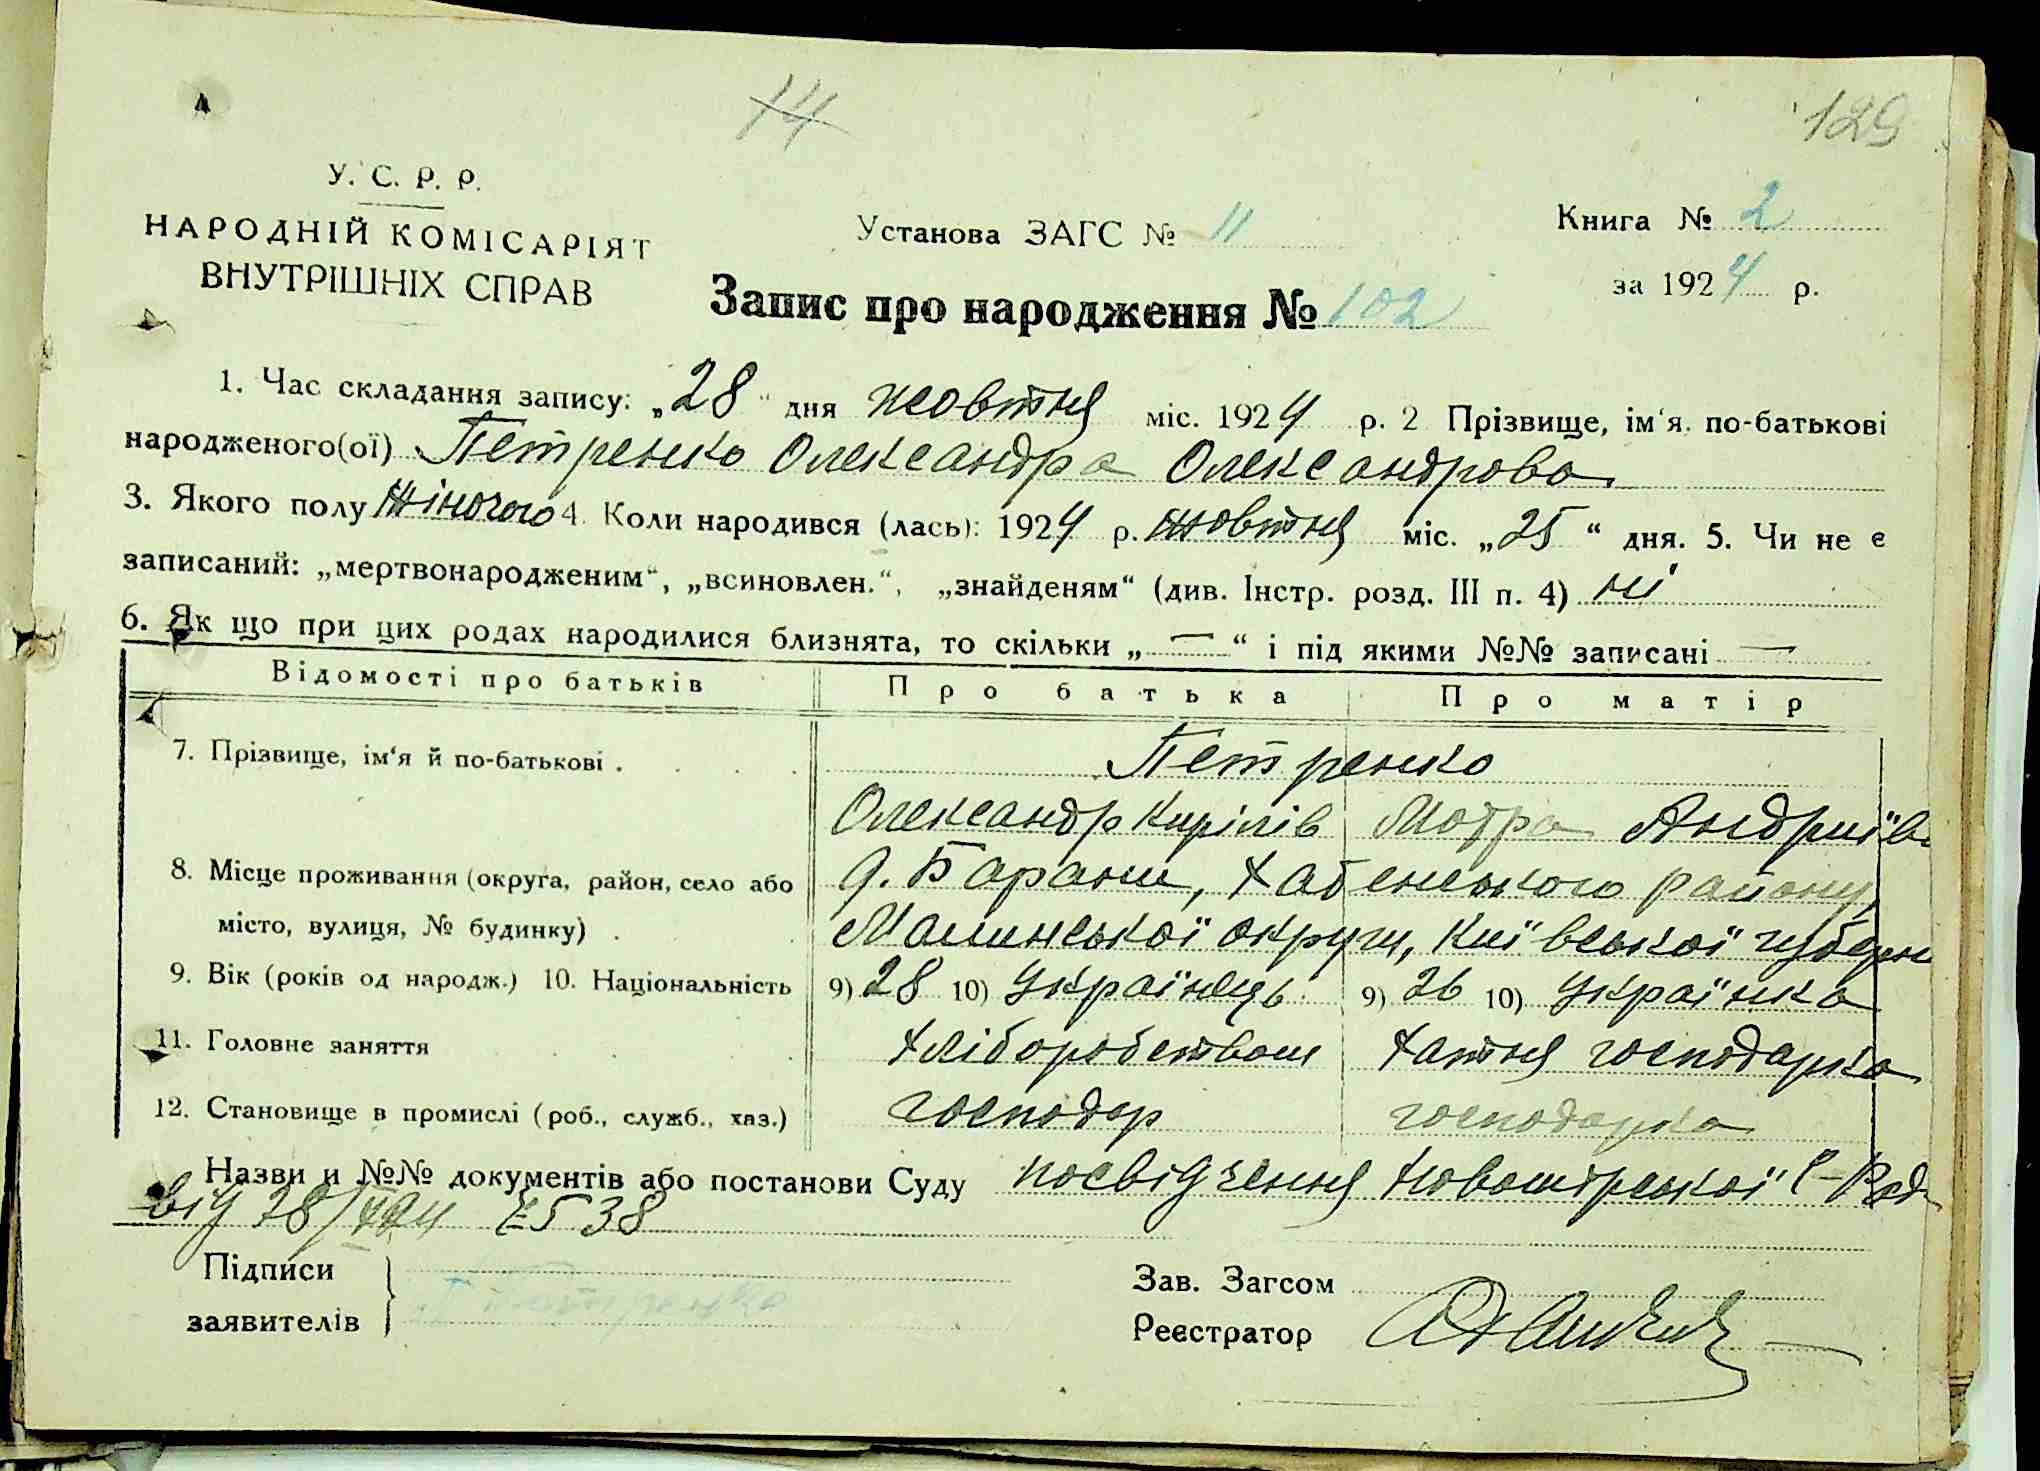 14
129
У. С. Р. Р.
НАРОДНІЙ КОМІСАРІЯТ
ВНУТРІШНІХ СПРАВ
Установа ЗАГС № 11
Книга № 2
за 1924 р.
Запис про народження № 102
1. Час складання запису: „28“ дня жовтня міс. 1924 р. 2 Прізвище, ім'я по-батькові
народженого(ої) Петренко Олександра Олександрова
3. Якого полу жіночого 4. Коли народився (лась): 1924 р. жовтня міс. „25“ дня. 5. Чи не є
записаний: „мертвонародженим“, „всиновлен.“, „знайденям“ (див. Інстр. розд. III п. 4) ні
6. Як що при цих родах народилися близнята, то скільки „—“ і під якими №№ записані —
Відомості про батьків Про батька Про матір
7. Прізвище, ім'я й по-батькові . Петренко
Олександр Кирілів Мотра Андриїв
8. Місце проживання (округа, район, село або д. Барани, Хабенського району,
місто, вулиця, № будинку) . Малинської округи, Київської губерн
9. Вік (років од народж.) 10. Національність 9) 28 10) Українець 9) 26 10) Українка
11. Головне заняття хліборобством хатня господарка
12. Становище в промислі (роб., служб., хаз.) господар господарка
Назви и №№ документів або постанови Суду посвідчення С-Рад
від 28/ 538
Підписи
заявителів Петренко
Зав. Загсом
Реєстратор